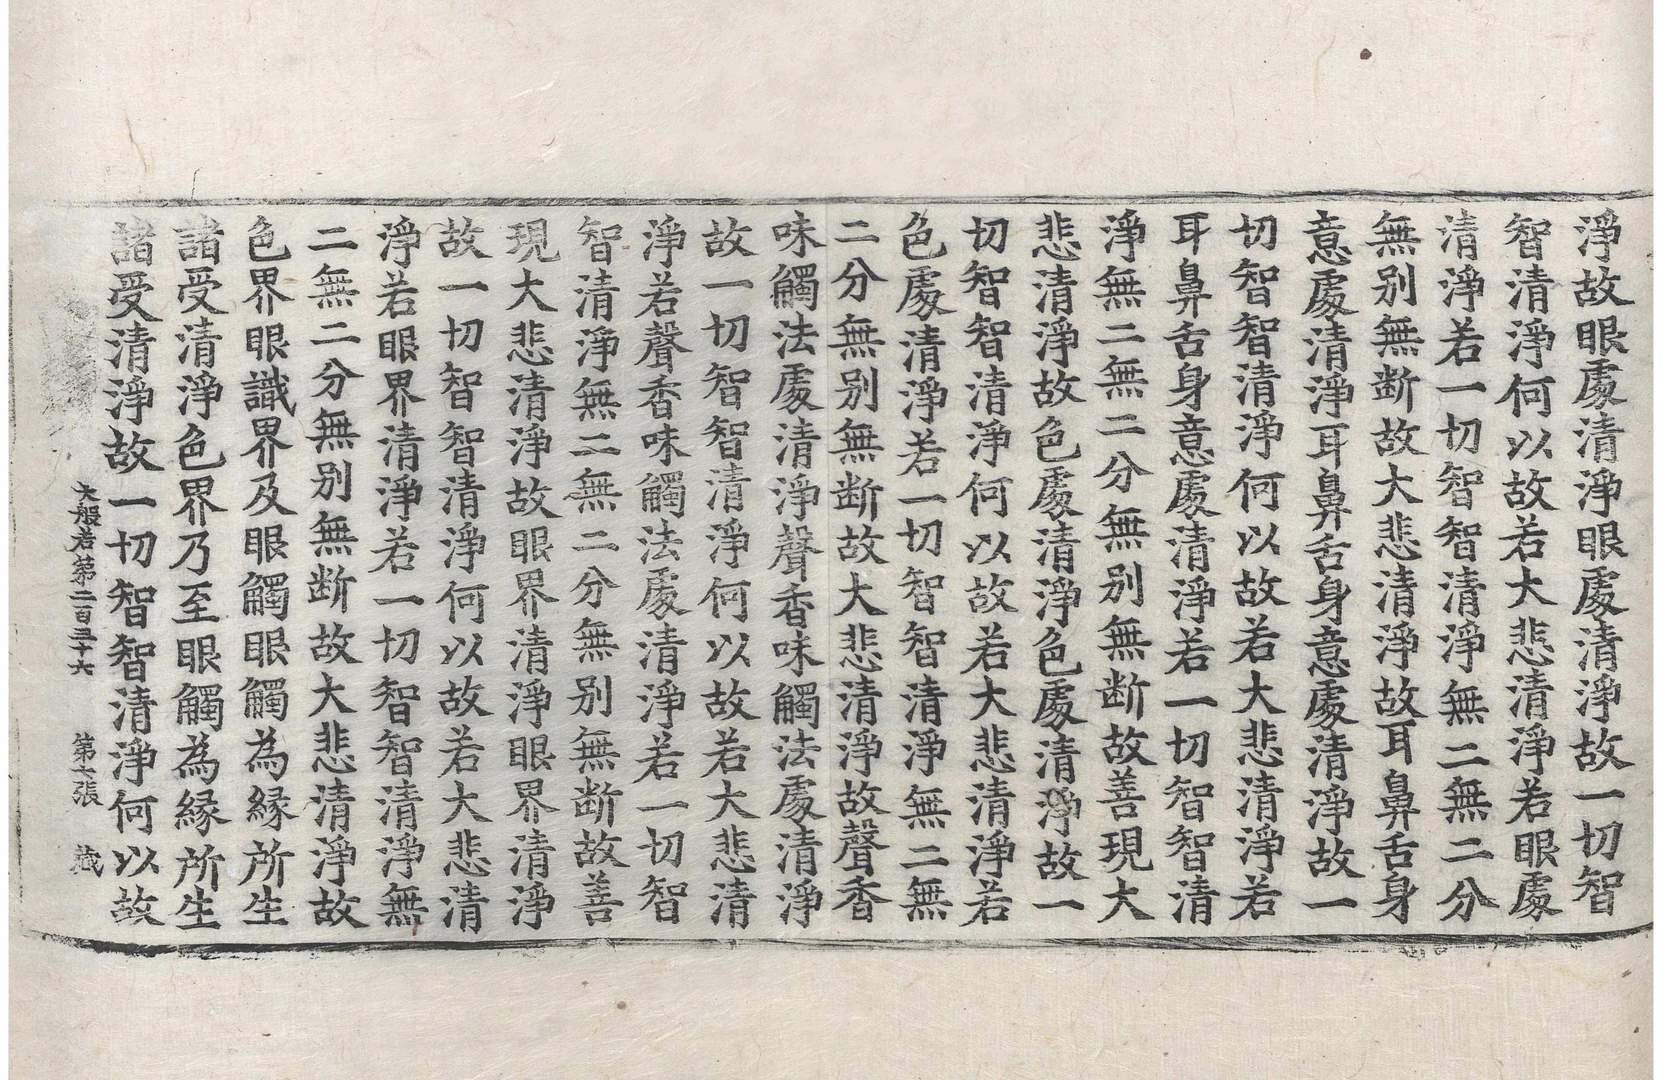 淨故眼處清淨眼處清淨故一切智
智清淨何以故若大悲清淨若眼處
清淨若一切智智清淨無二無二分
無别無断故大悲清淨故耳鼻舌身
意處清淨耳鼻舌身意處清淨故一
切智智清淨何以故若大悲清淨若
耳鼻舌身意處清淨若一切智智清
淨無二無二分無别無断故善現大
悲清淨故色處清淨色處清淨故一
切智智清淨何以故若大悲清淨若
色處清淨若一切智智清淨無二無
二分無别無断故大悲清淨故聲香
味觸法處清淨聲香味觸法處清淨
故一切智智清淨何以故若大悲清
淨若聲香味觸法處清淨若一切智
智清淨無二無二分無别無断故善
現大悲清淨故眼界清淨眼界清淨
故一切智智清淨何以故若大悲清
淨若眼界清淨若一切智智清淨無
二無二分無别無断故大悲清淨故
色界眼識界及眼觸眼觸為縁所生
諸受清淨色界乃至眼觸為縁所生
諸受清淨故一切智智清淨何以故
大般若第二百三十六 第七張 藏